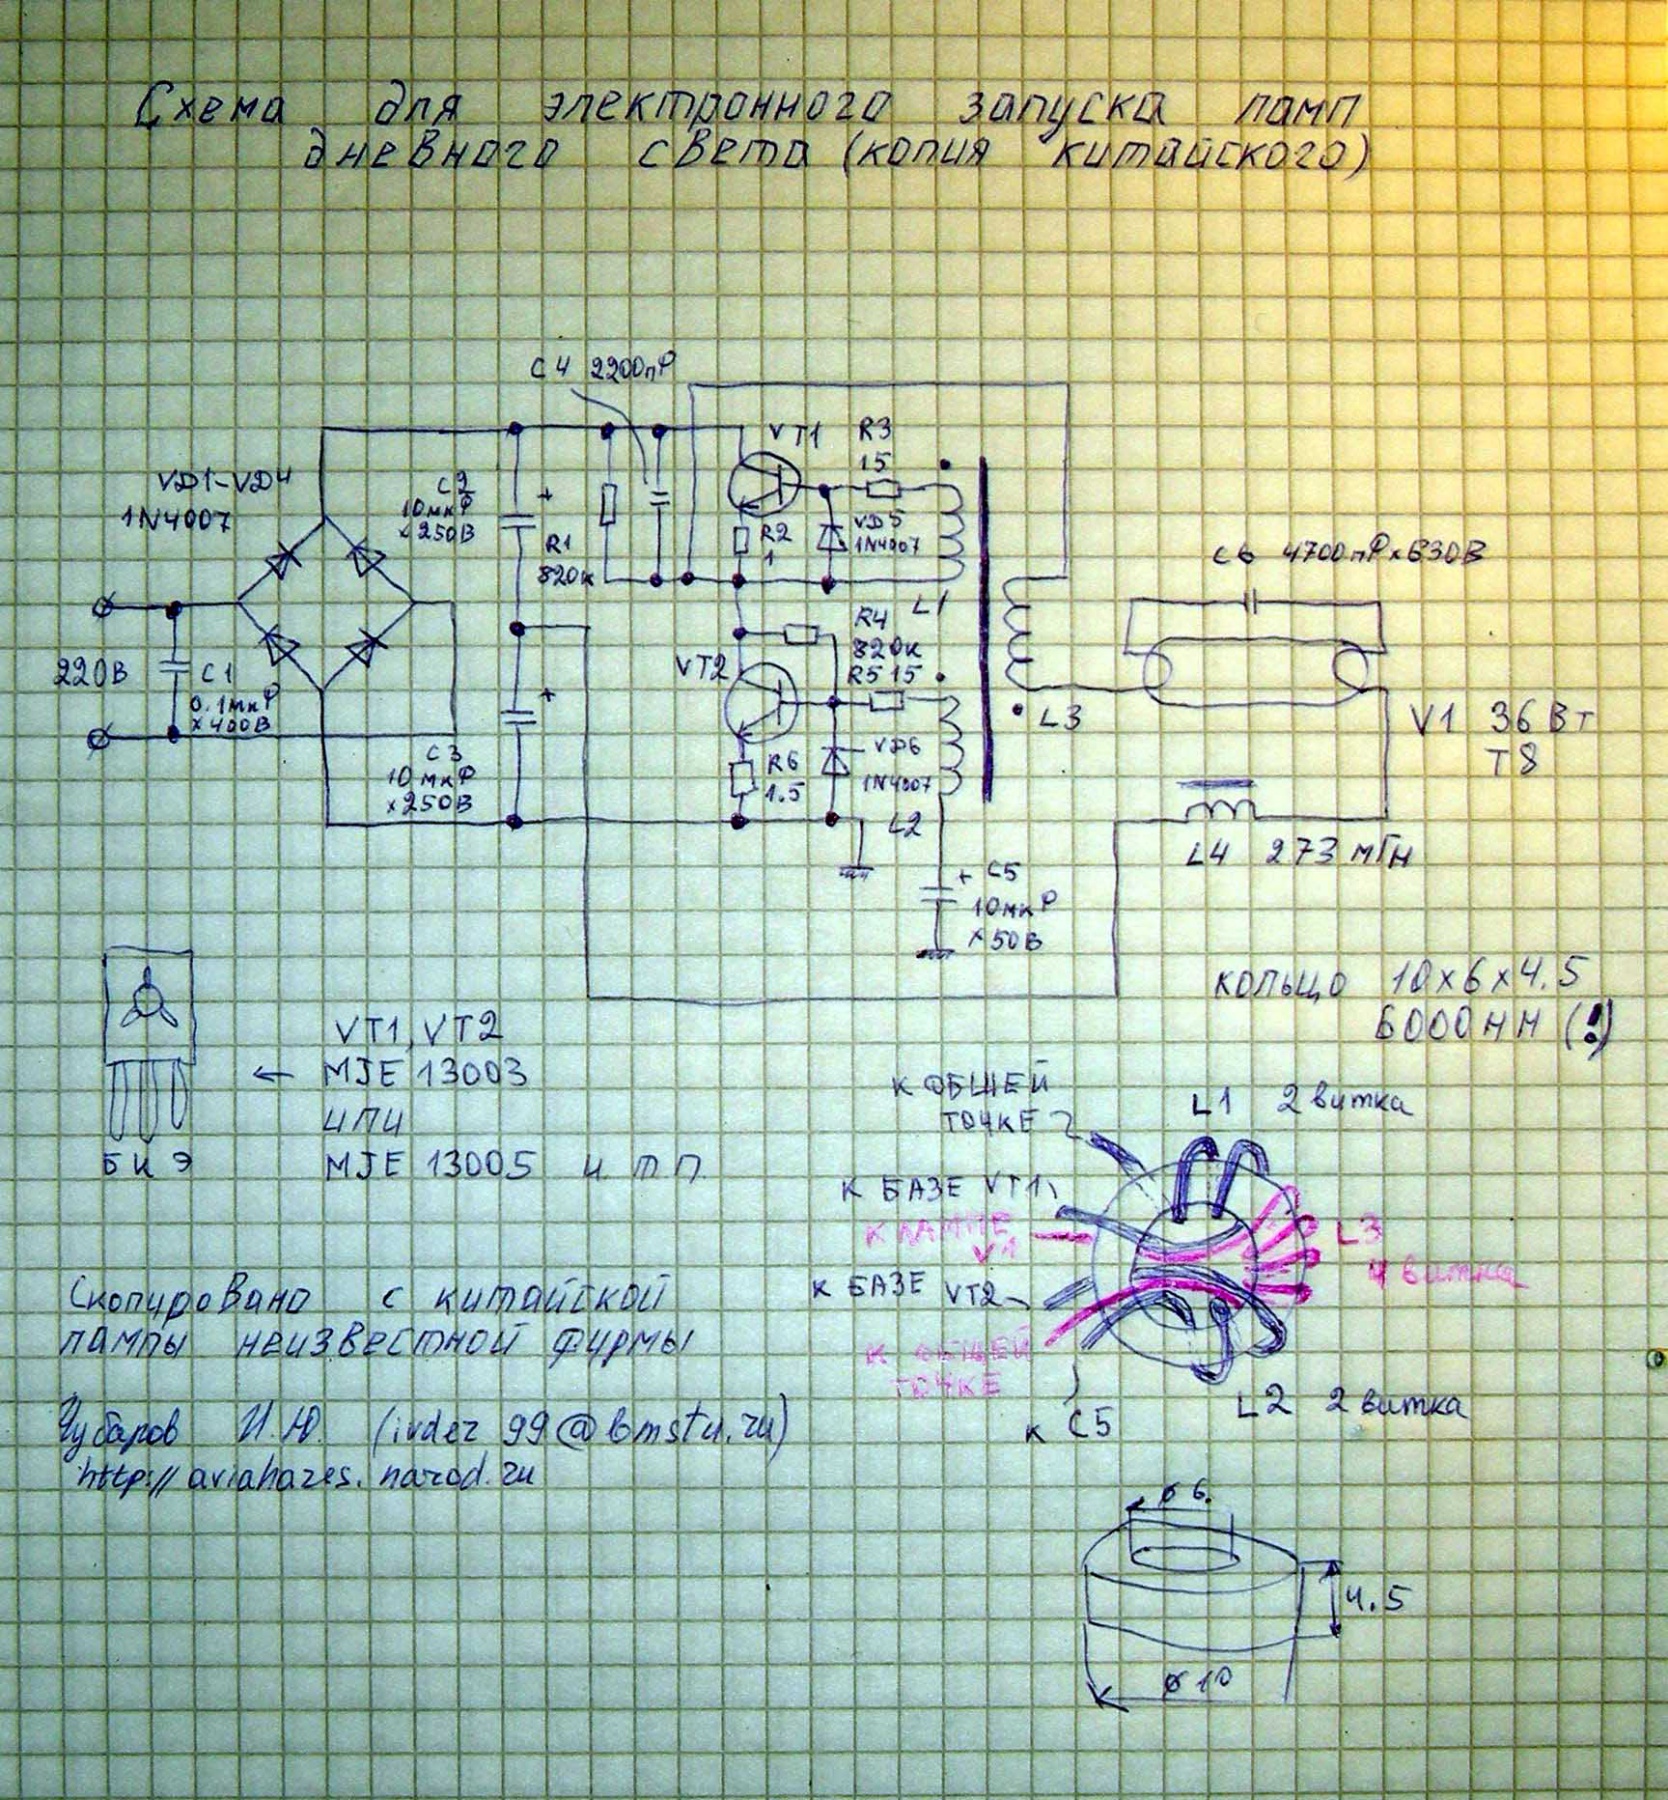 Схема для электронного запуска ламп
дневного света (копия китайского)
C4 2200пФ
VT1
R3
15
VD1-VD4
1N4007
C2
10мкФ
x250В
+
R1
820к
R2
1
VD5
1N4007
C6 4700пФx630В
L1
R4
820к
R5 15
VT2
220В
C1
0.1мкФ
x400В
+
L3
V1 36Вт
T8
C3
10мкФ
x250В
R6
1.5
VD6
1N4007
L2
L4 273мГн
+ C5
10мкФ
x50В
кольцо 10x6x4.5
6000НН (!)
VT1, VT2
← MJE 13003
или
MJE 13005 и т.п.
Б К Э
К ОБЩЕЙ
ТОЧКЕ
L1 2 витка
К БАЗЕ VT1
К ЛАМПЕ
V1
L3
4 витка
К БАЗЕ VT2
К ОБЩЕЙ
ТОЧКЕ
К C5
L2 2 витка
Скопировано с китайской
лампы неизвестной фирмы
Чубаров И.Ю. (ivdez99@bmstu.ru)
http://aviahazes.narod.ru
ø 6
4.5
ø 10